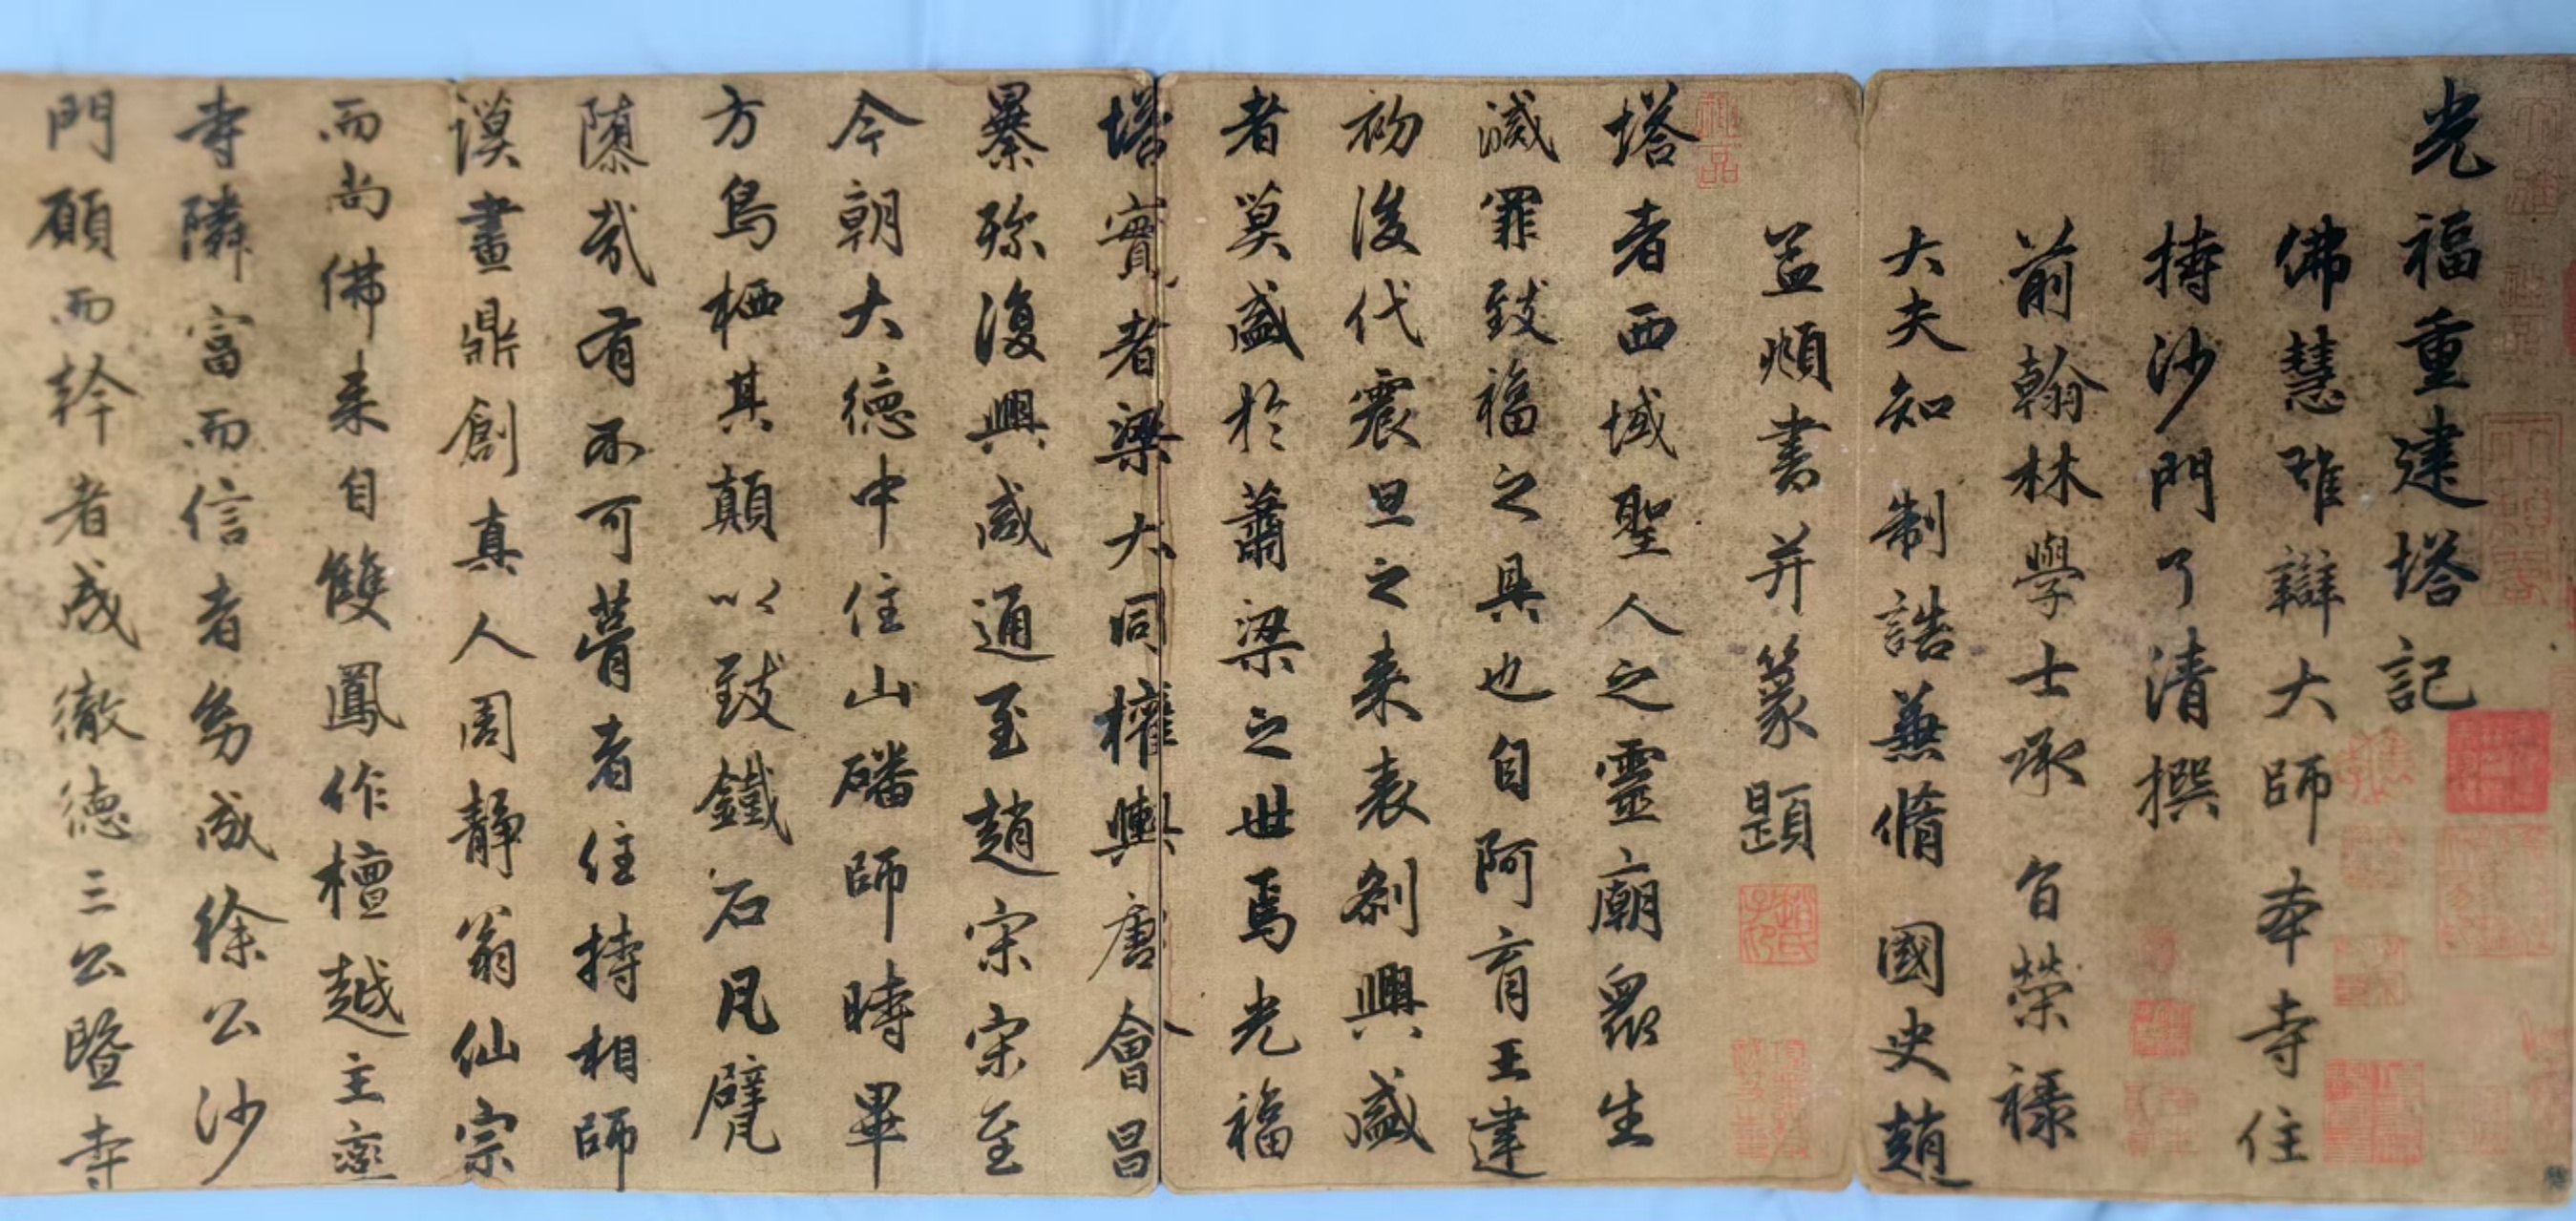 光福重建塔記
佛慧雄辯大師本寺住
持沙門了清撰
前翰林學士承旨榮祿
大夫知 制誥兼脩 國史趙
孟頫書并篆題
塔者西域聖人之靈廟衆生
滅罪致福之具也自阿育王建
初後代震旦之来表剎興盛
者莫盛於蕭梁之世焉光福
塔實者梁大同權輿唐會昌
暴殄復興咸通至趙宋宋至
今朝大德中住山磻師時畢
方鳥栖其顛以致鐵石凡甓
隳哉有不可瞢者住持相師
謨畫鼎創真人周靜翁仙宗
而尚佛来自雙鳳作檀越主
寺隣富而信者努成徐公沙
門願而幹者成徹德三公暨寺
神品